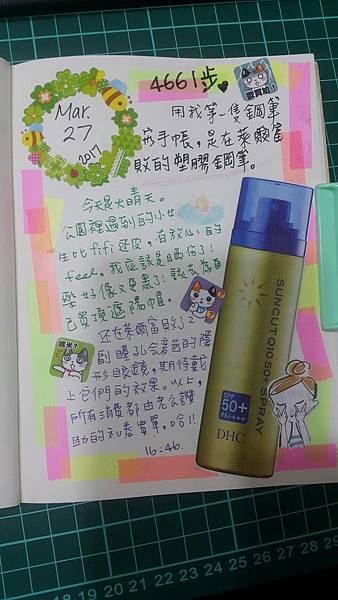 Mar.
27
2017
4661步
敗買姐!
用我第一隻鋼筆
寫手帳,是在萊爾富
敗的塑膠鋼筆。
今天是大晴天。
公園裡遇到的小女
生比fifi還皮,有放心的
feel。我應該是曬傷了!
樂好像又黑了!該去為自
己買頂遮陽帽。
還在萊爾富敗了2
副瞳孔會變色的隱
形眼鏡,期待戴
上它們的效果。以上,
所有消費都由老公讚
助的礼卷買單,哈!!
16:46
啥米?
SUNCUT Q10 50+ SPRAY
SPF
50+
PA++++
DHC
18 19 20 21 22 23 24 25 26 27 28 29